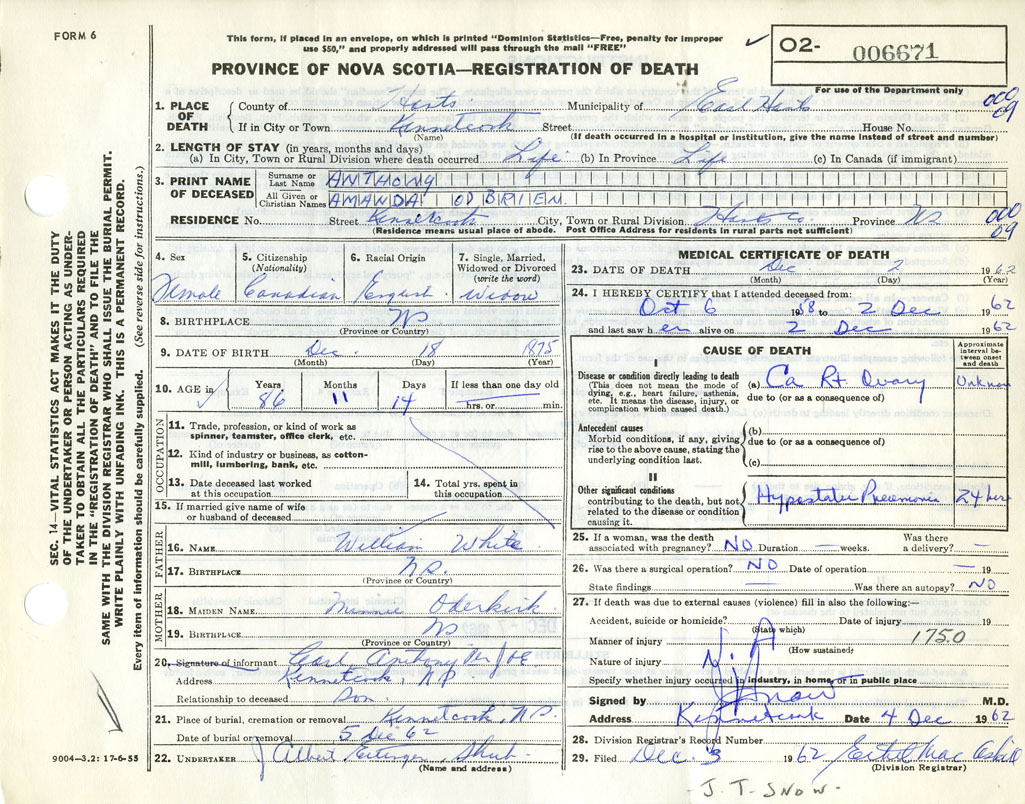 FORM 6
This form, if placed in an envelope, on which is printed "Dominion Statistics—Free, penalty for improper
use $50," and properly addressed will pass through the mail "FREE"
✓ O2- 006671
PROVINCE OF NOVA SCOTIA—REGISTRATION OF DEATH
For use of the Department only
1. PLACE OF DEATH
County of Hants Municipality of East Hants
000
09
If in City or Town Kennetcook Street House No.
(Name) (If death occurred in a hospital or institution, give the name instead of street and number)
2. LENGTH OF STAY (in years, months and days)
(a) In City, Town or Rural Division where death occurred Life (b) In Province Life (c) In Canada (if immigrant)
3. PRINT NAME OF DECEASED
Surname or Last Name ANTHONY
All Given or Christian Names AMANDA OD BRIEN
RESIDENCE No. Street Kennetcook City, Town or Rural Division Hants Co. Province NS
000
09
(Residence means usual place of abode. Post Office Address for residents in rural parts not sufficient)
SEC. 14—VITAL STATISTICS ACT MAKES IT THE DUTY
OF THE UNDERTAKER OR PERSON ACTING AS UNDER-
TAKER TO OBTAIN ALL THE PARTICULARS REQUIRED
IN THE "REGISTRATION OF DEATH" AND TO FILE THE
SAME WITH THE DIVISION REGISTRAR WHO SHALL ISSUE THE BURIAL PERMIT.
WRITE PLAINLY WITH UNFADING INK. THIS IS A PERMANENT RECORD.
Every item of information should be carefully supplied. (See reverse side for instructions.)
4. Sex
Female
5. Citizenship
(Nationality)
Canadian
6. Racial Origin
English
7. Single, Married,
Widowed or Divorced
(write the word)
Widow
8. BIRTHPLACE NS
(Province or Country)
9. DATE OF BIRTH Dec. 18 1875
(Month) (Day) (Year)
10. AGE in
Years Months Days If less than one day old
86 11 14 hrs. or min.
OCCUPATION
11. Trade, profession or kind of work as
spinner, teamster, office clerk, etc.
12. Kind of industry or business, as cotton-
mill, lumbering, bank, etc.
13. Date deceased last worked
at this occupation
14. Total yrs. spent in
this occupation
15. If married give name of wife
or husband of deceased
FATHER
16. NAME William White
17. BIRTHPLACE N.S.
(Province or Country)
MOTHER
18. MAIDEN NAME Minnie Oderkirk
19. BIRTHPLACE NS
(Province or Country)
20. Signature of informant Carl Anthony
Address Kennetcook, N.S.
Relationship to deceased Son
21. Place of burial, cremation or removal Kennetcook, N.S.
Date of burial or removal 5 Dec 62
22. UNDERTAKER J Albert
(Name and address)
9004—3.2: 17-6-55
MEDICAL CERTIFICATE OF DEATH
23. DATE OF DEATH Dec 2 1962
(Month) (Day) (Year)
24. I HEREBY CERTIFY that I attended deceased from:
Oct 6 1958 to 2 Dec 62
and last saw her alive on 2 Dec 1962
CAUSE OF DEATH
Approximate
interval be-
tween onset
and death
I
Disease or condition directly leading to death
(This does not mean the mode of
dying, e.g., heart failure, asthenia,
etc. It means the disease, injury, or
complication which caused death.)
(a) Ca Rt. Ovary Unknown
due to (or as a consequence of)
Antecedent causes
Morbid conditions, if any, giving
rise to the above cause, stating the
underlying condition last.
(b)
due to (or as a consequence of)
(c)
II
Other significant conditions
contributing to the death, but not
related to the disease or condition
causing it.
Hypostatic Pneumonia 24 hrs
25. If a woman, was the death
associated with pregnancy? NO Duration — weeks.
Was there
a delivery? —
26. Was there a surgical operation? NO Date of operation — 19
State findings — Was there an autopsy? NO
27. If death was due to external causes (violence) fill in also the following:—
Accident, suicide or homicide? Date of injury 19
(State which)
Manner of injury 1750
(How sustained)
Nature of injury N.A
Specify whether injury occurred in industry, in home, or in public place
Signed by J Snow M.D.
Address Kennetcook Date 4 Dec 1962
28. Division Registrar's Record Number
29. Filed Dec. 3 1962
(Division Registrar)
- J. T. SNOW -